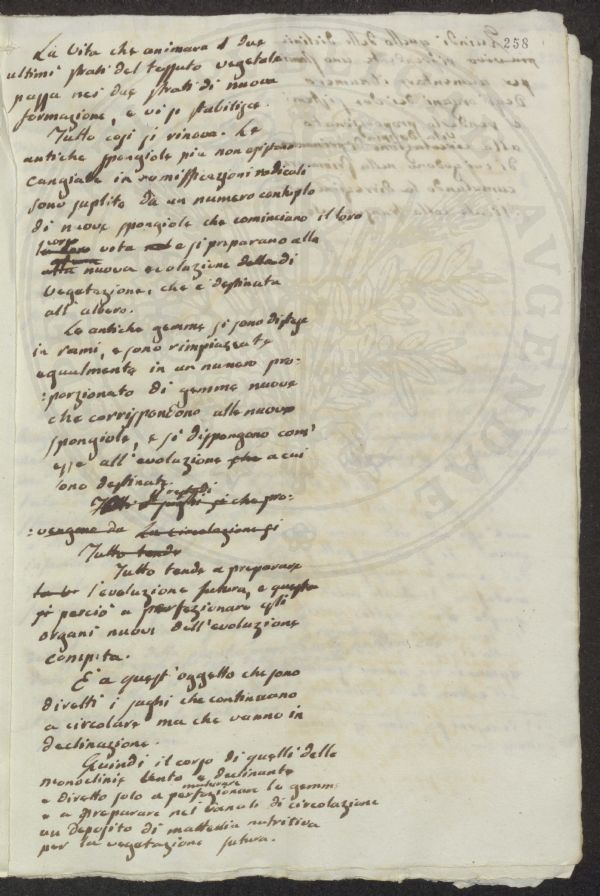 258
La Vita che animava i due
ultimi strati del tessuto vegetale
passa nei due strati di nuova
formazione, e vi si stabilizze.
Tutto così si rinova. Le
antiche spongiole più non esistono
cangiate in ramifficazioni radicali
sono suplite da un numero centuplo
di nuove spongiole che cominciano il loro
corso
vita e si preparano alla
futura
alla nuova evoluzione della di
Vegetazione, che è destinata
all' albero.
Le antiche gemme si sono distese
in rami, e sono rimpiazzate
equalmente in un numero pro-
:porzionato di gemme nuove
che corrispondono alle nuove
spongiole, e si dispongono com'
esse all'evoluzione che a cui
sono destinate.
Tutti i sughi si che pro-
:vengono da La circolazione si
Tutto tende
Tutto tende a preparare
l'evoluzione futura, e questo
si perciò a perfezionare gli
organi nuovi dell'evoluzione
compita.
E' a quest' oggetto che sono
diretti i sughi che continuano
a circolare ma che vanno in
declinazione.
Quindi il corso di quelli delle
monoclinie lento e declinante
maturare
e diretto solo a perfezionare le gemme
e a preparare nei canali di circolazione
un deposito di matteria nutritiva
per la vegetazione futura.